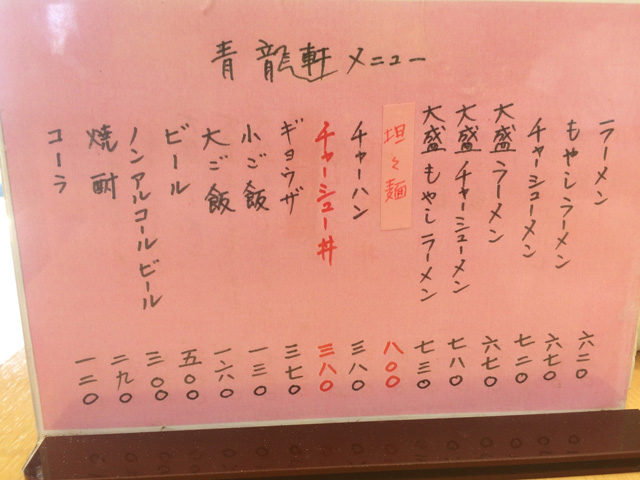 青龍軒メニュー
ラーメン 六二〇
もやしラーメン 六七〇
チャーシューメン 七二〇
大盛ラーメン 六七〇
大盛チャーシューメン 七八〇
大盛もやしラーメン 七三〇
坦々麺 八〇〇
チャーハン 三八〇
チャーシュー丼 三八〇
ギョウザ 三七〇
小ご飯 一三〇
大ご飯 一六〇
ビール 五〇〇
ノンアルコールビール 三〇〇
焼酎 二九〇
コーラ 一二〇